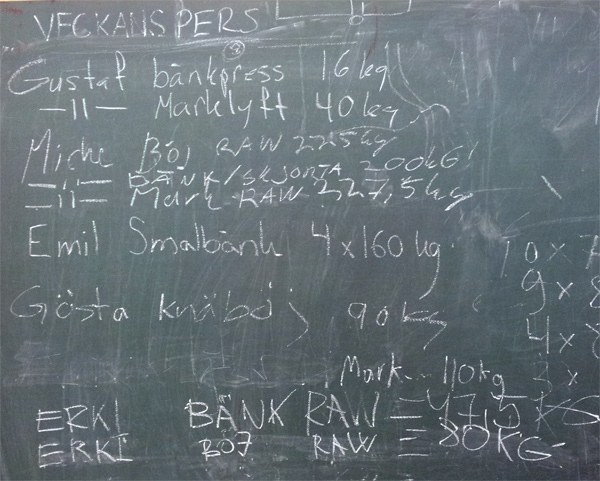 VECKANS PERS
Gustaf bänkpress 16 kg
—11— Marklyft 40 kg
Micke Böj RAW 225 kg
—11— BÄNK/SKJORTA 200KG!
—11— Mark RAW 227,5 kg
Emil Smalbänk 4x160 kg
10 x 7
9 x 8
Gösta knäböj 90kg
4 x 8
Mark 110kg
3 x
ERKI BÄNK RAW = 47,5 KG
ERKI BÖJ RAW = 80KG